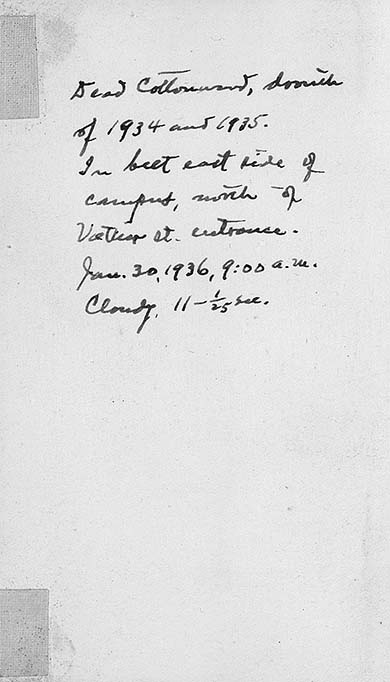 Dead Cottonwood, drouth
of 1934 and 1935.
In belt east side of
campus, north of
st. entrance.
Jan. 30, 1936, 9:00 a.m.
Cloudy, 11 - 1/25 sec.